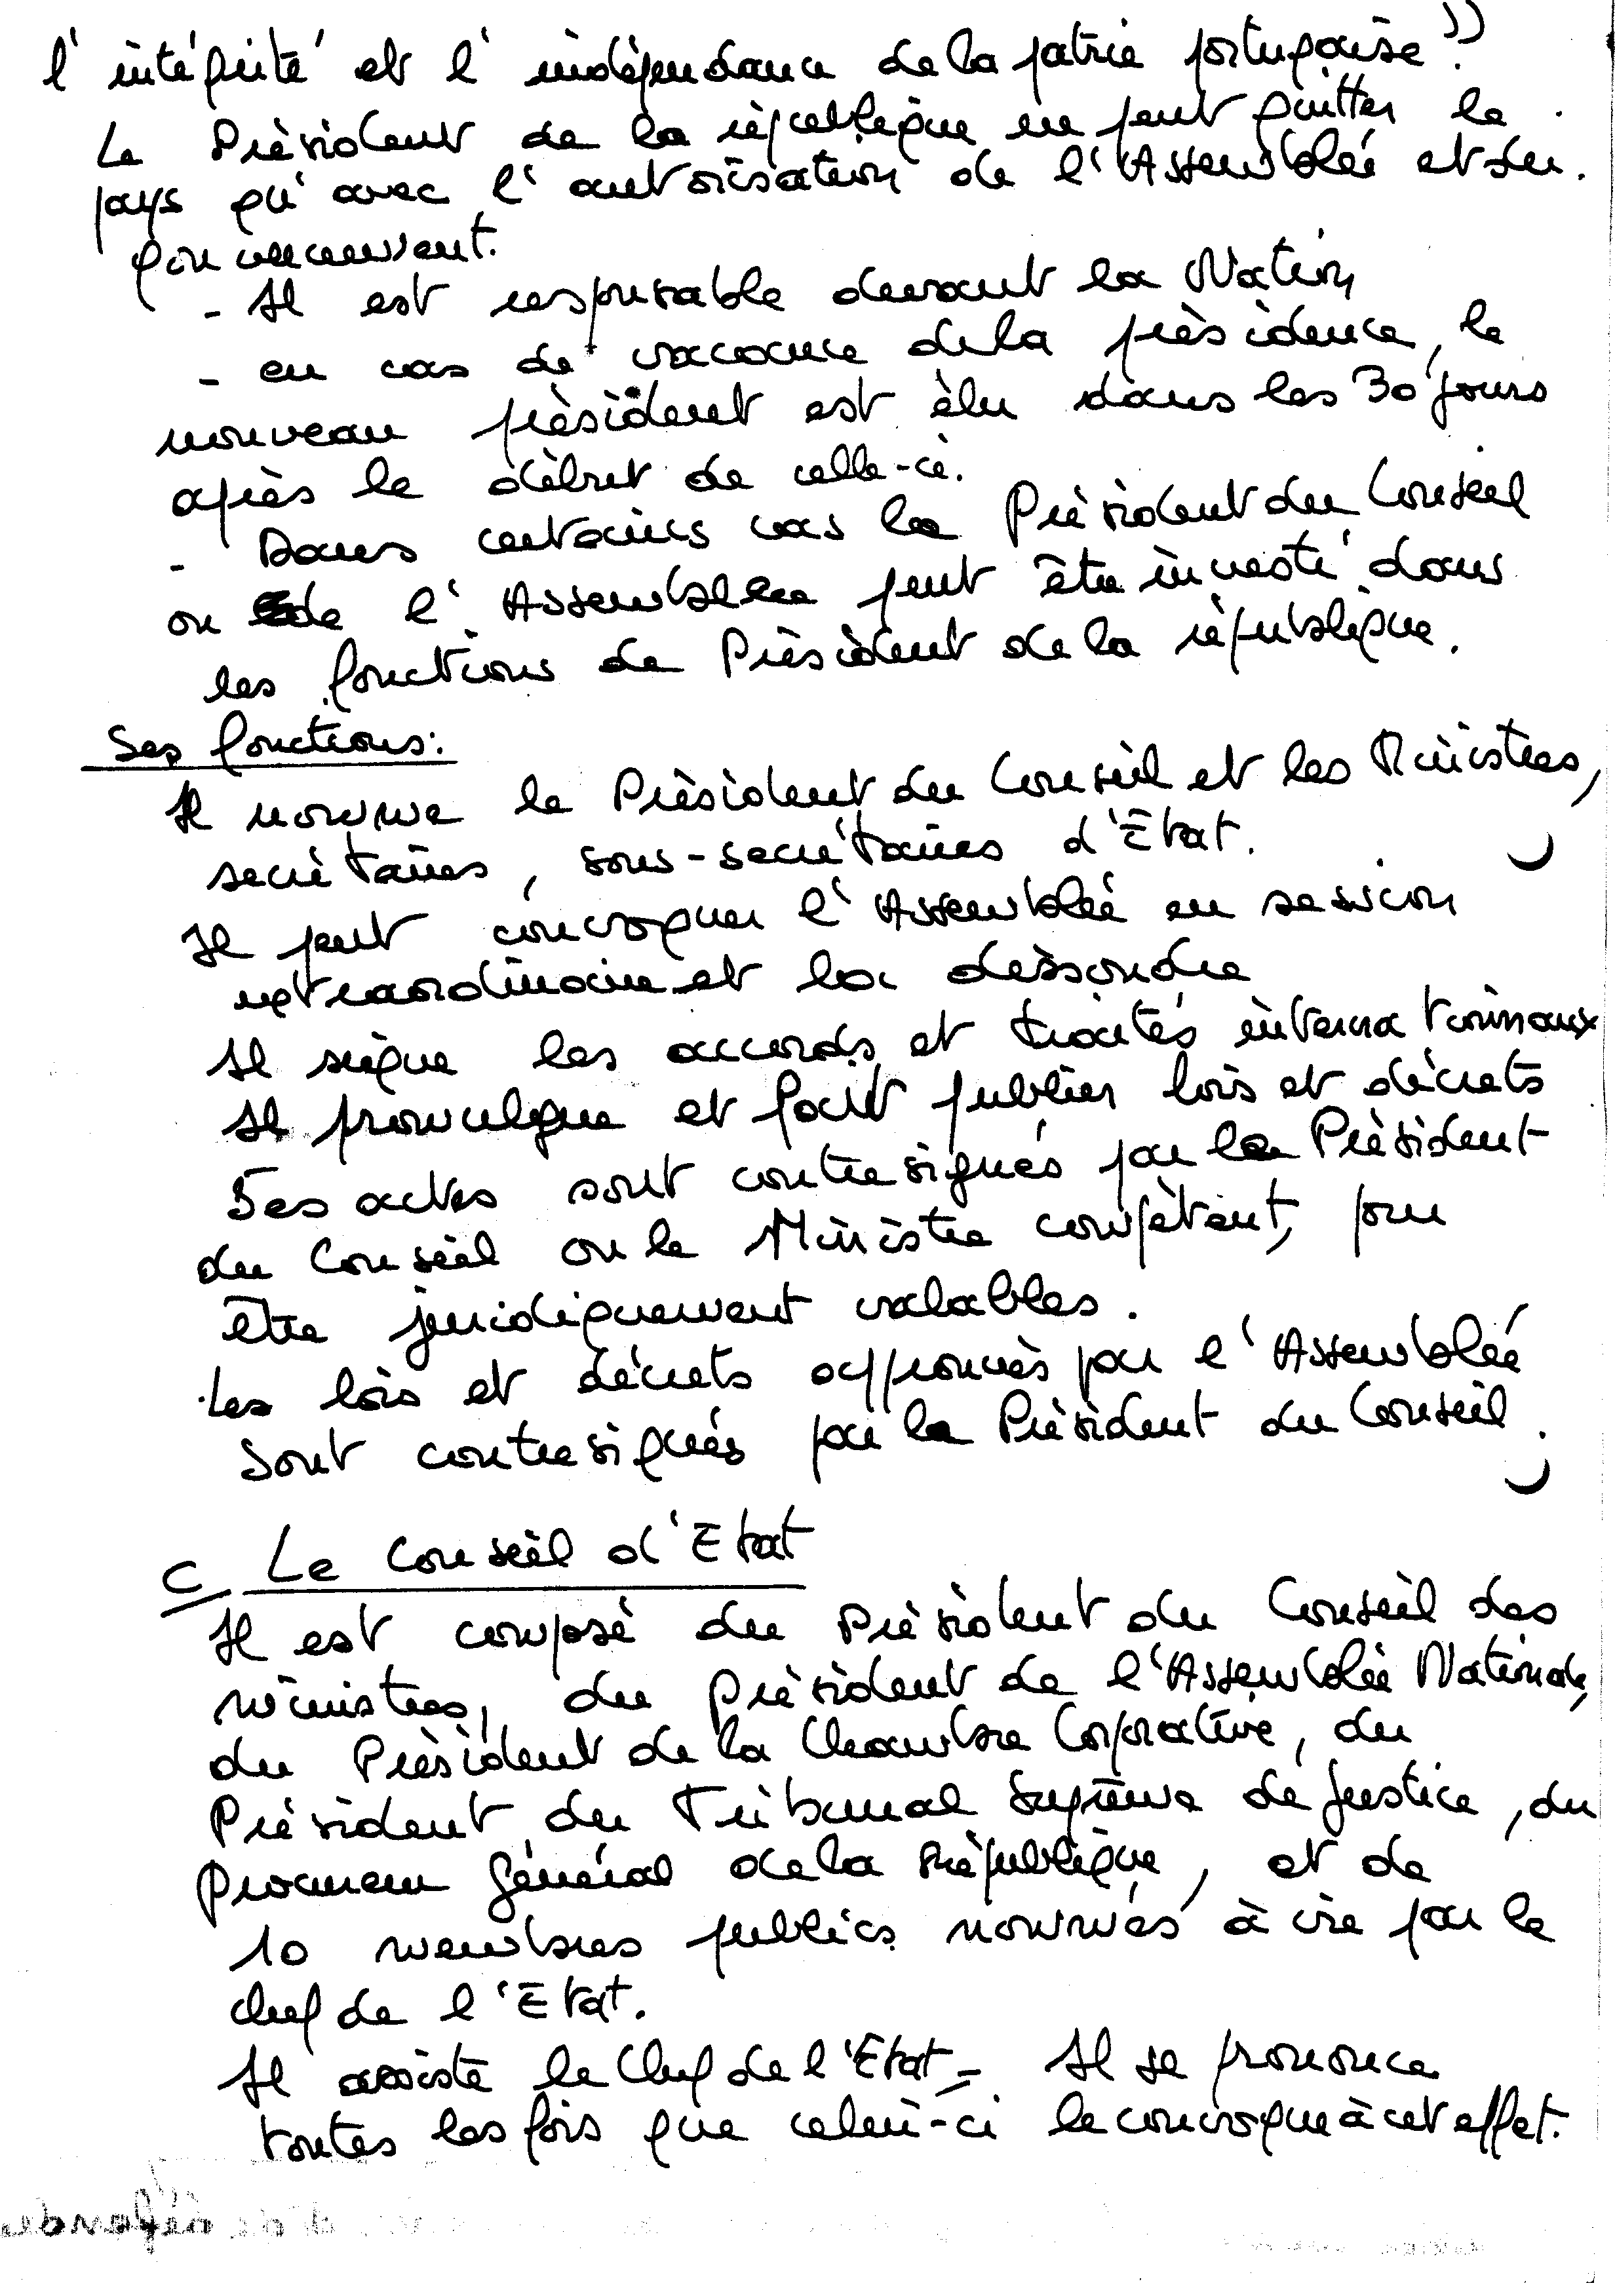 l'intégrité et l'indépendance de la patrie portugaise."
Le Président de la république ne peut quitter le
pays qu'avec l'autorisation de l'Assemblée et du
gouvernement.
- Il est responsable devant la Nation
- en cas de vacance de la présidence, le
nouveau président est élu dans les 30 jours
après le début de celle-ci.
- Dans certains cas le Président du Conseil
ou de l'Assemblée peut être investi dans
les fonctions de Président de la république.
Ses fonctions:
Il nomme le Président du Conseil et les Ministres,
secrétaires, sous-secrétaires d'État.
Il peut convoquer l'Assemblée en session
extraordinaire et la dissoudre
Il signe les accords et traités internationaux
Il promulgue et fait publier lois et décrets
Ses actes sont contresignés par le Président
du Conseil ou le Ministre compétent, pour
être juridiquement valables.
Les lois et décrets approuvés par l'Assemblée
sont contresignés par le Président du Conseil.
C Le Conseil d'Etat
Il est composé du Président du Conseil des
ministres, du Président de l'Assemblée Nationale,
du Président de la Chambre Corporative, du
Président du Tribunal Suprême de Justice, du
procureur général de la République, et de
10 membres publics nommés à vie par le
chef de l'Etat.
Il assiste le Chef de l'Etat - Il se prononce
toutes les fois que celui-ci le convoque à cet effet.